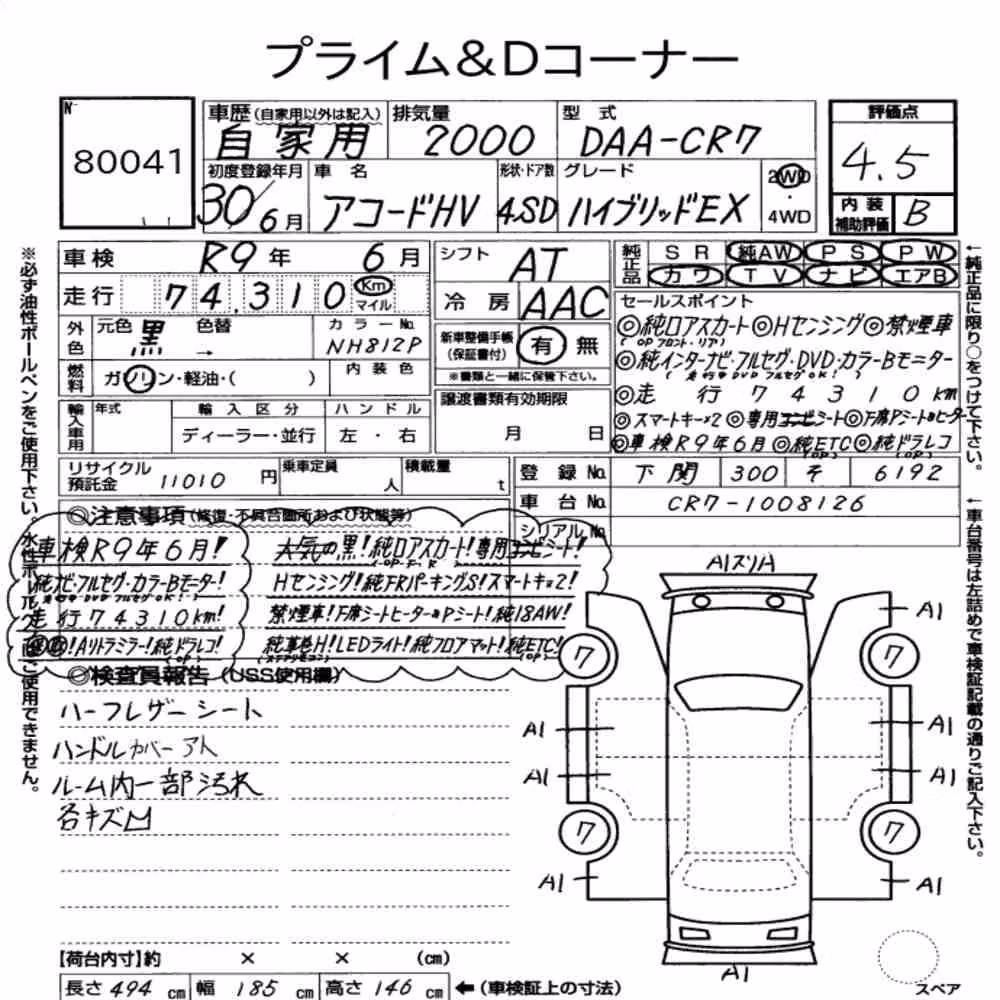 プライム&Dコーナー
No
80041
車歴(自家用以外は記入) 自家用
排気量 2000
型式 DAA-CR7
評価点 4.5
初度登録年月 30/6月
車名 アコードHV
形状・ドア数 4SD
グレード ハイブリッドEX
2WD 4WD
内装補助評価 B
車検 R9年 6月
シフト AT
純正品 SR 純AW PS PW
カワ TV ナビ エアB
走行 74,310 Km マイル
冷房 AAC
セールスポイント
◎純ロアスカート◎Hセンシング◎禁煙車
(OPフロント・リア)
◎純インターナビ・フルセグ・DVD・カラーBモニター
(走行中DVDフルセグOK!)
◎走行74310km
◎スマートキー×2 ◎専用コンビシート◎F席Pシート&ヒーター
◎車検R9年6月◎純ETC◎純ドラレコ
(OP) (OP)
外色 元色 黒 色替 →
カラーNo. NH812P
新車整備手帳(保証書付) 有 無
※書類と一緒に保管下さい。
燃料 ガソリン・軽油・( )
内装色
輸入車用 年式 輸入区分 ディーラー・並行
ハンドル 左・右
譲渡書類有効期限 月 日
リサイクル預託金 11010円
乗車定員 人
積載量 t
登録No. 下関 300 そ 6192
車台No. CR7-1008126
シリアルNo.
◎注意事項(修復・不具合箇所および状態等)
車検R9年6月! 人気の黒!純ロアスカート!専用コンビシート!
(OP・F・R)
純ナビ・フルセグ・カラーBモニター! Hセンシング!純FRパーキングS!スマートキー×2!
走行中DVDフルセグOK!
走行74310km! 禁煙車!F席シートヒーター&Pシート!純18AW!
!Aリトラミラー!純ドラレコ! 純革巻H!LEDライト!純フロアマット!純ETC!
(OP) (ステアリモコン) (OP)
◎検査員報告(USS使用欄)
ハーフレザーシート
ハンドルカバー アト
ルーム内一部汚れ
各キズ凹
A1スリA
A1
7 7
A1 A1
A1 A1
7 7
A1 A1
A1
スペア
【荷台内寸】約 × × (cm)
長さ 494 cm 幅 185 cm 高さ 146 cm ←(車検証上の寸法)
※必ず油性ボールペンをご使用下さい。水性ボールペンはご使用できません。
←純正品に限り○をつけて下さい。
←車台番号は左詰めで車検証記載の通りご記入下さい。